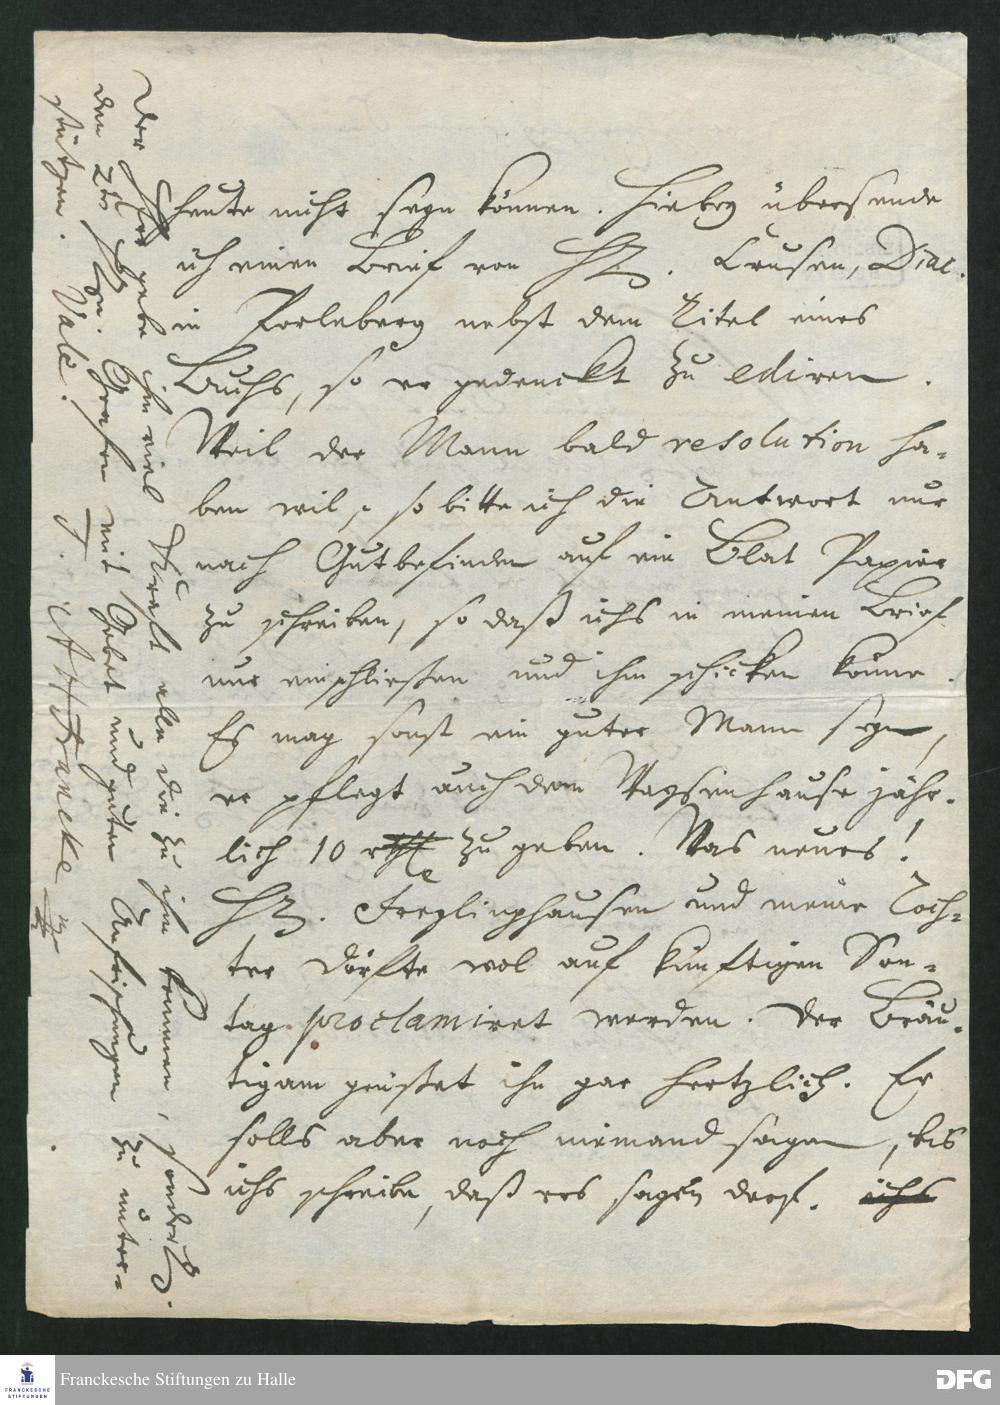 heute nicht seyn können. Hierbey übersende
ich einen Brief von H. Crusen, Diac.
in Perleberg nebst dem Titel eines
Buchs, so er gedenckt zu ediren.
Weil der Mann bald resolution ha-
ben wil, so bitte ich die Antwort nur
nach Gutbefinden auf ein Blat Papier
zu schreiben, so daß ichs in meinen Brief
nur einschließen und ihm schicken könne.
Es mag sonst ein guter Mann seyn,
er pflegt auch dem Waysenhause jähr-
lich 10 rthl zu geben. Was neues!
H. Freylinghausen und meine Toch-
ter dörfte wol auf künftigen Son-
tag proclamiret werden. Der Bräu-
tigam grüßet ihn gar hertzlich. Er
solls aber noch niemand sagen, bis
ichs schreibe, daß ers sagen derf. ichs
Der Herr gebe ihm viel Krafft alle die zu ihm kommen, sonderl.
den 2ten H. Grafen mit Gebet und guten Anfrischungen zu unter-
stützen. Vale. T. AHFrancke
Franckesche Stiftungen zu Halle
FRANCKESCHE
STIFTUNGEN
DFG